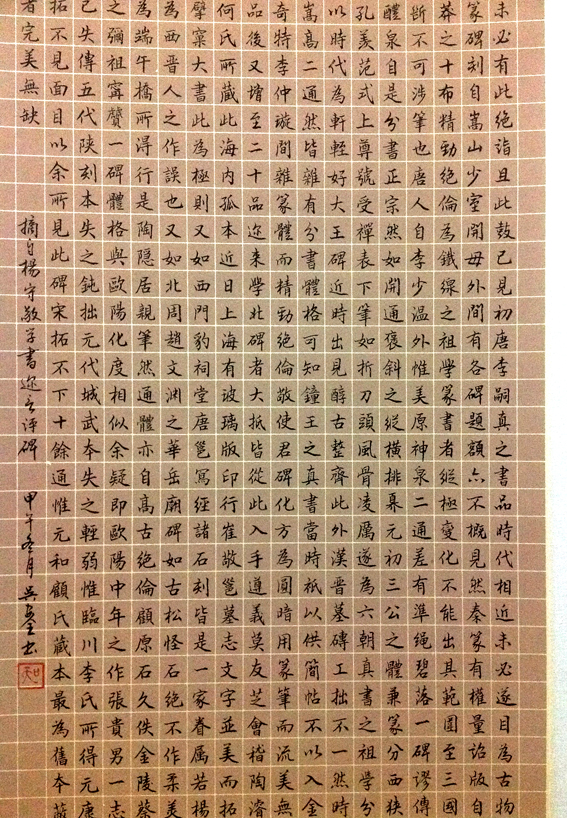 未必有此绝诣且此鼓已見初唐李嗣真之書品時代相近未必遂目為古物
篆碑刻自嵩山少室開母外間有各碑題額六不概見然秦篆有權量詔版自
莽之十布精勁绝倫為鐵線之祖學篆書者縱極變化不能出其範圍至三國
斷不可涉筆也唐人自李少温外惟美原神泉二通差有準繩碧落一碑謬傳
醴泉自是分書正宗然如開通褒斜之縱橫排奡元初三公之體兼篆分西狹
孔羡范式上尊號受禪表下筆如折刀頭風骨凌厲遂為六朝真書之祖學分
以時代為軒輊好大王碑近時出見醇古整齊此外漢晉墓磚工拙不一然時
嵩高二通然皆雜有分書體格可知鐘王之真書當時祇以供簡帖不以入金
奇特李仲璇間雜篆體而精勁绝倫敬使君碑化方為圓暗用篆筆而流美無
品後又增至二十品迩来學北碑者大抵皆從此入手遵義莫友芝會稽陶濬
何氏所藏此海内孤本近日上海有玻璃版印行崔敬邕墓志文字並美而拓
擘窠大書此為極則又如西門豹祠堂唐邕寫經諸石刻皆是一家眷属若楊
為西晋人之作誤也又如北周趙文渊之華岳廟碑如古松怪石绝不作柔美
為端午橋所得行是陶隐居親筆然通體亦自高古绝倫顧原石久佚金陵蔡
之彌祖寗贊一碑體格與歐陽化度相似余疑即歐陽中年之作張貴男一志
已失傳五代陕刻本失之鈍拙元代城武本失之輕弱惟臨川李氏所得元康
拓不見面目以余所見此碑宋拓不下十餘通惟元和顧氏藏本最為舊本藏
者完美無缺 摘自楊守敬学書迩言评碑 甲午冬月 書